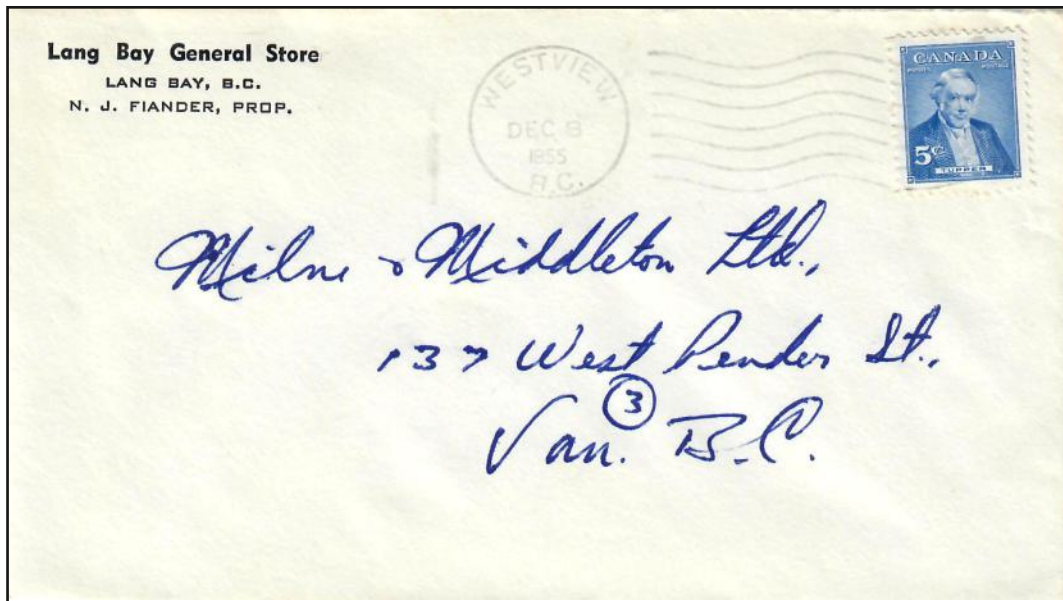 Lang Bay General Store
LANG BAY, B.C.
N. J. FIANDER, PROP.
WESTVIEW
DEC 8
1955
B.C.
CANADA
POSTES POSTAGE
5¢
TUPPER
Milne & Middleton Ltd.,
137 West Pender St.,
3
Van. B.C.